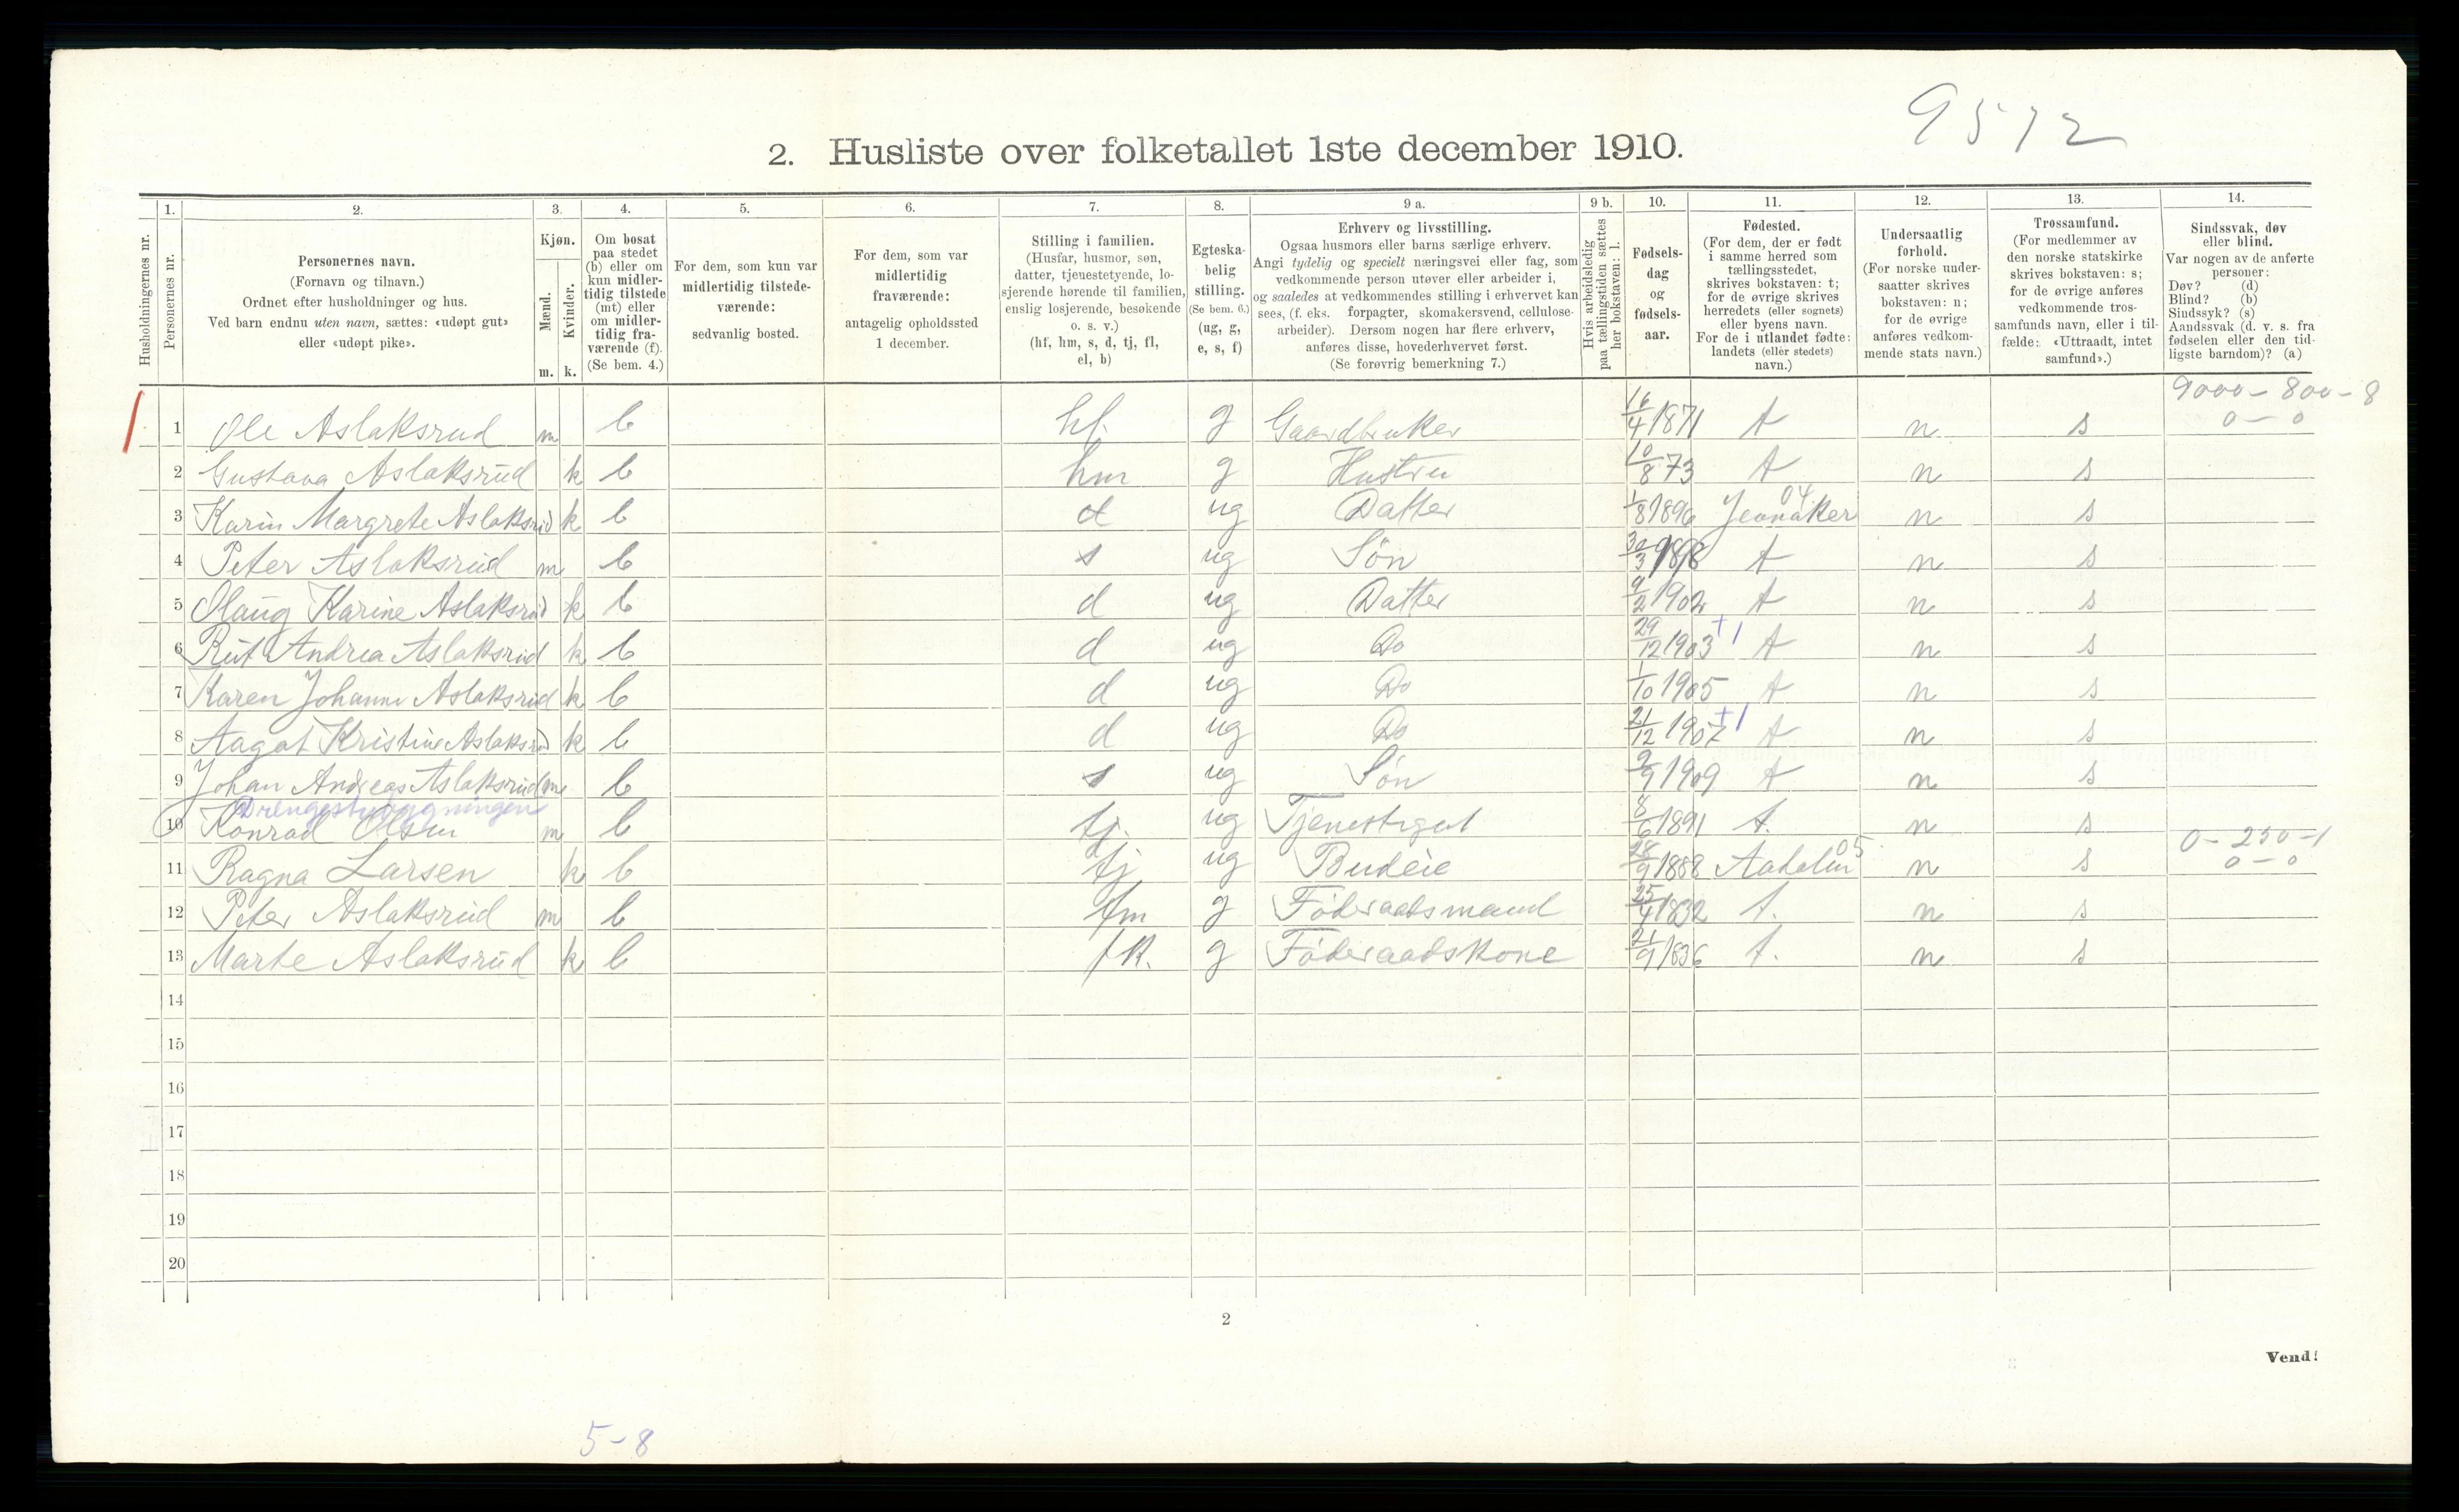 9512
2. Husliste over folketallet 1ste december 1910.
Husholdningernes nr.
1. Personernes nr.
2. Personernes navn.
(Fornavn og tilnavn.)
Ordnet efter husholdninger og hus.
Ved barn endnu uten navn, sættes: «udøpt gut»
eller «udøpt pike».
3. Kjøn.
Mænd. m.
Kvinder. k.
4. Om bosat
paa stedet
(b) eller om
kun midler-
tidig tilstede
(mt) eller
om midler-
tidig fra-
værende (f).
(Se bem. 4.)
5. For dem, som kun var
midlertidig tilstede-
værende:
sedvanlig bosted.
6. For dem, som var
midlertidig
fraværende:
antagelig opholdssted
1 december.
7. Stilling i familien.
(Husfar, husmor, søn,
datter, tjenestetyende, lo-
sjerende hørende til familien,
enslig losjerende, besøkende
o. s. v.)
(hf, hm, s, d, tj, fl,
el, b)
8. Egteska-
belig
stilling.
(Se bem. 6.)
(ug, g,
e, s, f)
9 a. Erhverv og livsstilling.
Ogsaa husmors eller barns særlige erhverv.
Angi tydelig og specielt næringsvei eller fag, som
vedkommende person utøver eller arbeider i,
og saaledes at vedkommendes stilling i erhvervet kan
sees, (f. eks. forpagter, skomakersvend, cellulose-
arbeider). Dersom nogen har flere erhverv,
anføres disse, hovederhvervet først.
(Se forøvrig bemerkning 7.)
9 b. Hvis arbeidsledig
paa tællingstiden sættes
her bokstaven: l.
10. Fødsels-
dag
og
fødsels-
aar.
11. Fødested.
(For dem, der er født
i samme herred som
tællingsstedet,
skrives bokstaven: t;
for de øvrige skrives
herredets (eller sognets)
eller byens navn.
For de i utlandet fødte:
landets (eller stedets)
navn.)
12. Undersaatlig
forhold.
(For norske under-
saatter skrives
bokstaven: n;
for de øvrige
anføres vedkom-
mende stats navn.)
13. Trossamfund.
(For medlemmer av
den norske statskirke
skrives bokstaven: s;
for de øvrige anføres
vedkommende tros-
samfunds navn, eller i til-
fælde: «Uttraadt, intet
samfund».)
14. Sindssvak, døv
eller blind.
Var nogen av de anførte
personer:
Døv? (d)
Blind? (b)
Sindssyk? (s)
Aandssvak (d. v. s. fra
fødselen eller den tid-
ligste barndom)? (a)
9000 - 800 - 8
0 - 0
1 Ole Aslaksrud m b hf. g Gaardbruker 16/4 1871 t n s
2 Gustava Aslaksrud k b hm g Hustru 10/8 73 t n s
04
3 Karin Margrete Aslaksrud k b d ug Datter 1/8 1896 Jevnaker n s
4 Peter Aslaksrud m b s ug Søn 30/3 1898 t n s
5 Olaug Karine Aslaksrud k b d ug Datter 9/2 1902 t n s
6 Rut Andrea Aslaksrud k b d ug Do 29/12 1903 +1 t n s
7 Karen Johanne Aslaksrud k b d ug Do 1/10 1905 t n s
8 Aagot Kristine Aslaksrud k b d ug Do 21/12 1907 +1 t n s
9 Johan Andreas Aslaksrud m b s ug Søn 2/9 1909 t n s
Drengestubygningen
10 Konrad Olsen m b tj. ug Tjenestegut 8/6 1891 t. n s
0 - 250 - 1
0 - 0
05
11 Ragna Larsen k b tj ug Budeie 28/9 1888 Aadalen n s
12 Peter Aslaksrud m b fm g Føderaadsmand 25/4 1832 t. n s
13 Marte Aslaksrud k b fk. g Føderaadskone 21/9 1836 t. n s
14
15
16
17
18
19
20
2
Vend!
5-8